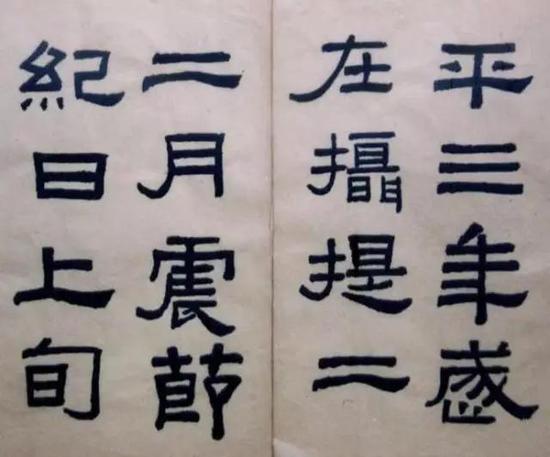 平三年歲
在攝提二
二月震節
紀日上旬